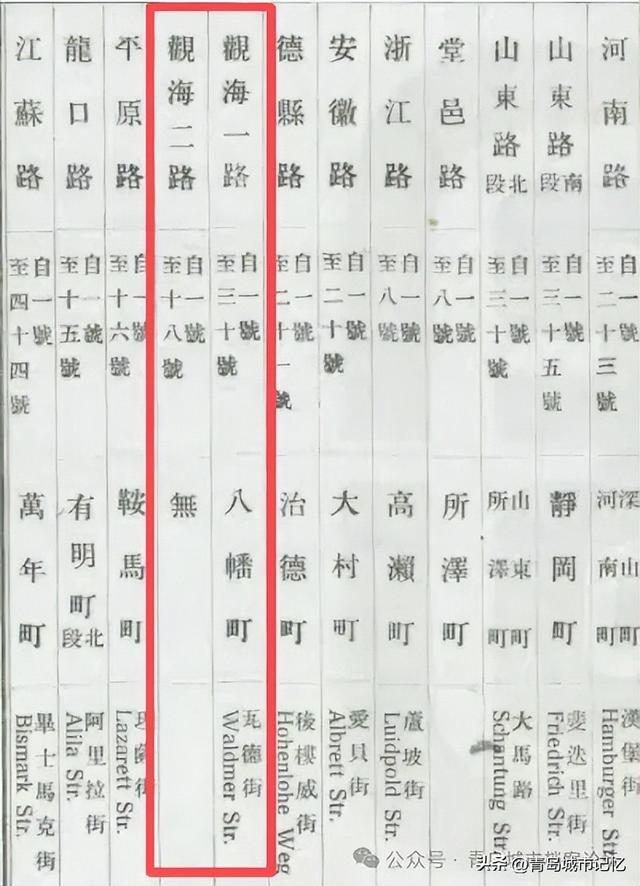 河南路
自一號
至二十三號
深山町
河南町
漢堡街
Hamburger Str.
山東路南段
自一號
至三十五號
靜岡町
斐迭里街
Friedrich Str.
山東路北段
自一號
至三十號
山東町
所澤町
大馬路
Schantung Str.
堂邑路
自一號
至八號
所澤町
浙江路
自一號
至八號
高瀨町
蘆坡街
Luidpold Str.
安徽路
自一號
至二十號
大村町
愛貝街
Albrett Str.
德縣路
自一號
至二十一號
治德町
樓威街
Hohenlohe Weg
觀海一路
自一號
至三十號
八幡町
瓦德街
Waldmer Str.
觀海二路
自一號
至十八號
無
平原路
自一號
至十六號
鞍馬町
街
Lazarett Str.
龍口路
自一號
至十五號
有明町北段
阿里拉街
Alila Str.
江蘇路
自一號
至四十四號
萬年町
畢士馬克街
Bismark Str.
公众号·青岛城市档案论坛
头条@青岛城市记忆